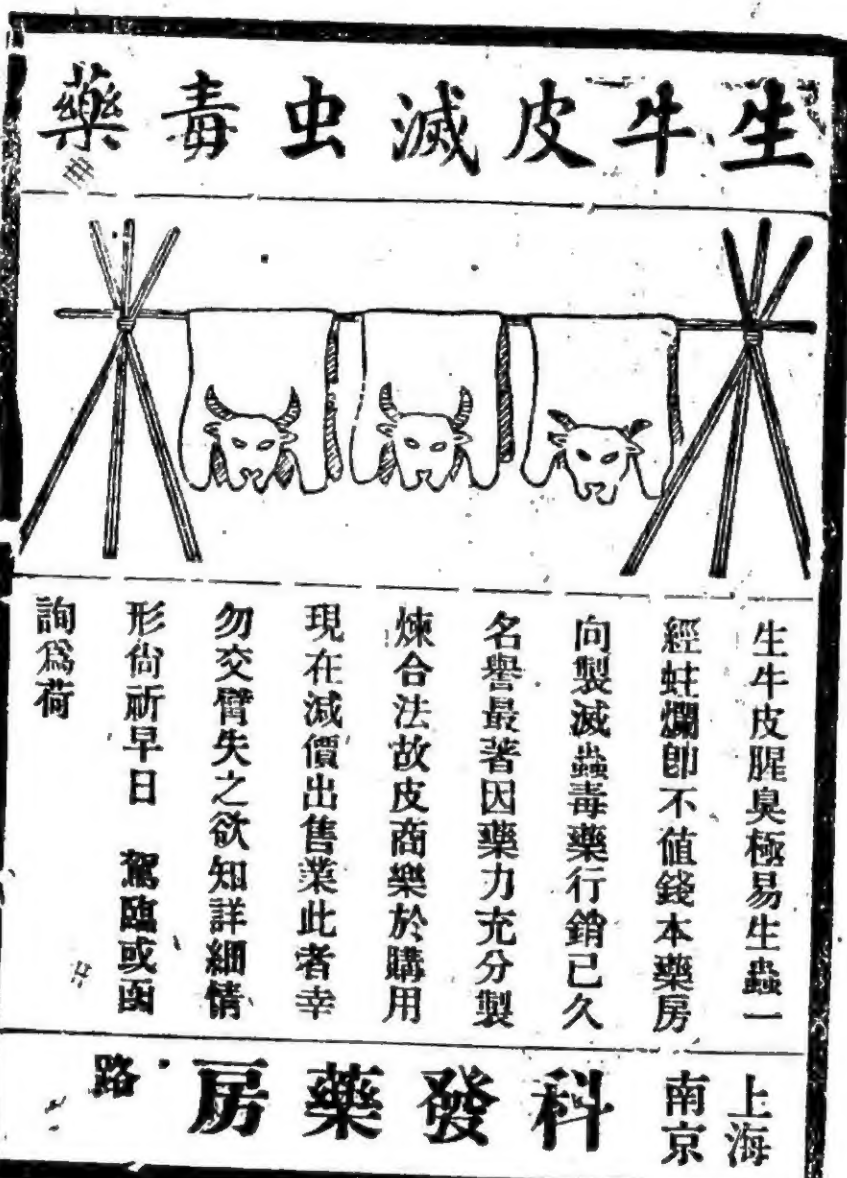 生牛皮滅虫毒藥
生牛皮腥臭極易生蟲一
經蛀爛卽不值錢本藥房
向製滅蟲毒藥行銷已久
名譽最著因藥力充分製
煉合法故皮商樂於購用
現在減價出售業此者幸
勿交臂失之欲知詳細情
形尙祈早日　駕臨或函
詢爲荷
上海
南京
科發藥房
路